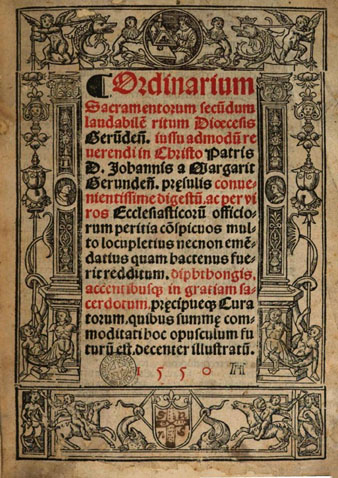 ¶ Ordinarium
Sacramentorum secūdum
laudabilē ritum Diœcesis
Gerūdeñ. iussu admodū re
uerendi in Christo Patris
D. Johannis a Margarit
Gerundeñ. pręsulis conue-
nientissime digestū, ac per vi
ros Ecclesiasticorū officio-
rum peritia cōspicuos mul
to locupletius necnon emē-
datius quam hactenus fue-
rit redditum. diphthongis,
accentibusq; in gratiam sa-
cerdotum, pręcipueq; Cura
torum, quibus summę com-
moditati hoc opusculum fu-
turū est, decenter illustratū.
1550